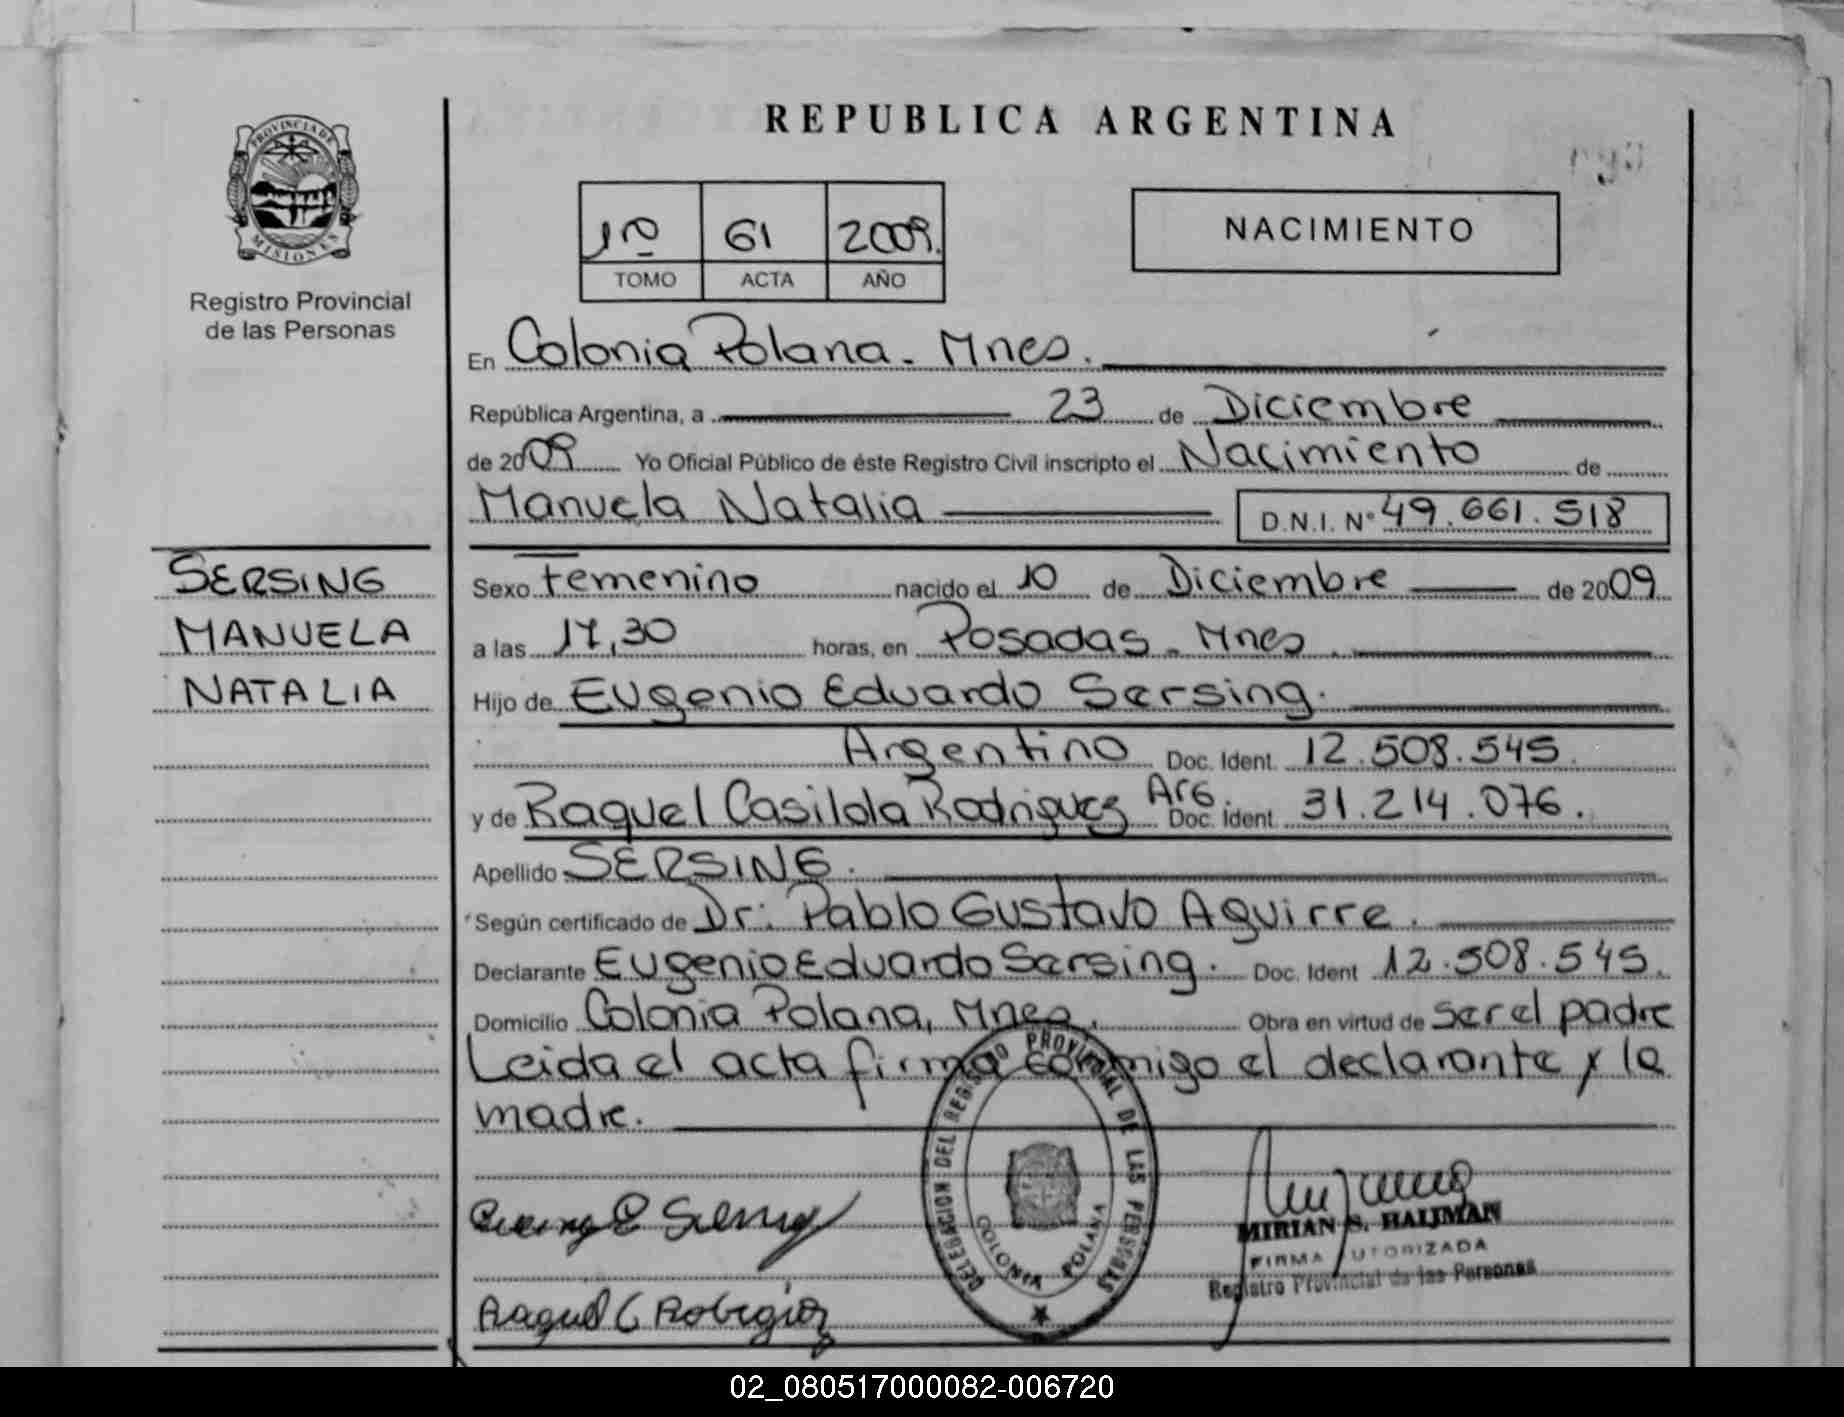 PROVINCIA DE
MISIONES
Registro Provincial
de las Personas
REPUBLICA ARGENTINA
1º 61 2009.
TOMO ACTA AÑO
NACIMIENTO
En Colonia Polana. Mnes.
República Argentina, a 23 de Diciembre
de 2009 Yo Oficial Público de éste Registro Civil inscripto el Nacimiento de
Manuela Natalia D.N.I. Nº 49.661.518
SERSING
MANUELA
NATALIA
Sexo Femenino nacido el 10 de Diciembre de 2009
a las 17,30 horas, en Posadas. Mnes.
Hijo de Eugenio Eduardo Sersing.
Argentino Doc. Ident. 12.508.545.
y de Raquel Casilda Rodriguez Arg. Doc. Ident. 31.214.076.
Apellido SERSING.
Según certificado de Dr: Pablo Gustavo Aguirre.
Declarante Eugenio Eduardo Sersing. Doc. Ident 12.508.545.
Domicilio Colonia Polana, Mnes. Obra en virtud de ser el padre
Leida el acta firma conmigo el declarante y la
madre.
DELEGACION DEL REGISTRO PROVINCIAL DE LAS PERSONAS
COLONIA POLANA
Raquel C
MIRIAN S. HALJMAN
FIRMA AUTORIZADA
Registro Provincial de las Personas
02_080517000082-006720